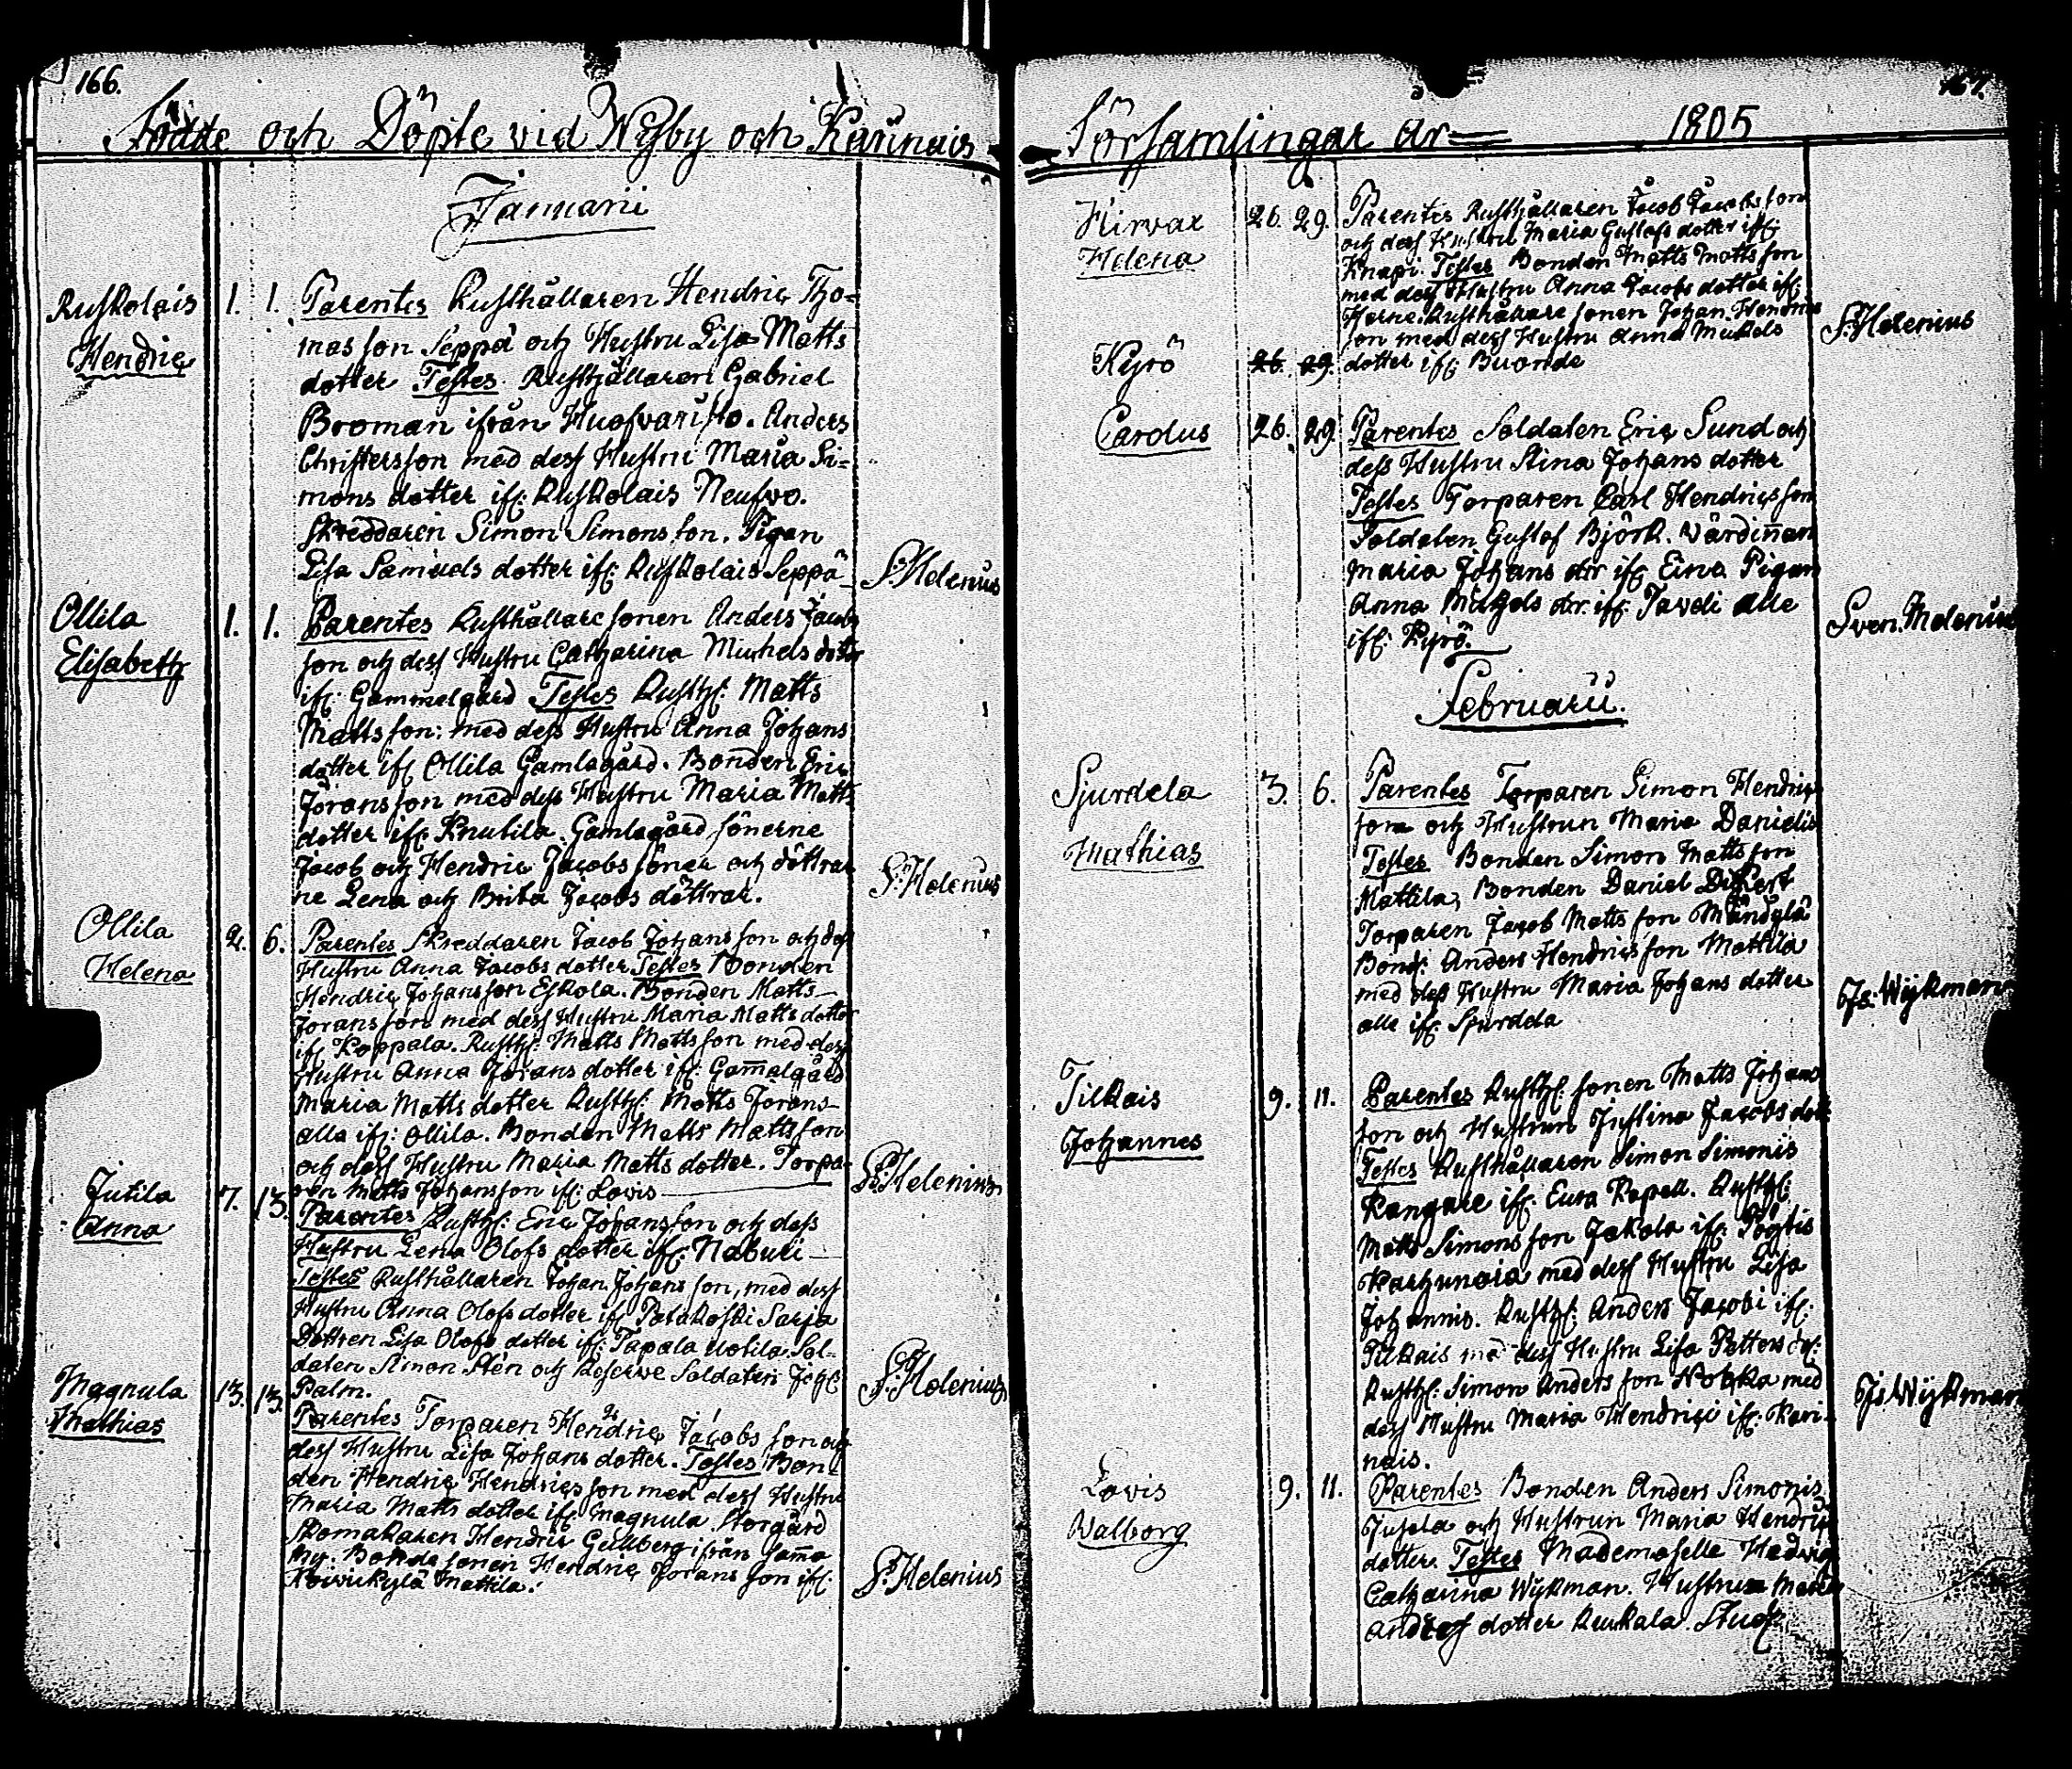 166.
Födde och Döpte vid Wysby och Karinais
Januarii
Ruskolais
Hendric
1. 1.
Parentes Rusthållaren Hendric Tho=
mas son Seppä och Hustru Lisa Matts
dotter Testes Rusthållaren Gabriel
Broman ifrån Anders
Christersson med dess Hustru Maria Si=
mons dotter if: Ruskolais Neufvo.
Skreddaren Simon Simons son. Pigan
Lisa Samuels dotter if: Ruskolais Seppä
S. Helenius
Ollila
Elisabeth
1. 1.
Parentes Rusthållare sonen Anders Jacobs
son och dess Hustru Catharina Michels dotter
if: Gammelgård Testes Rusth: Matts
Matts son: med dess Hustru Anna Johans
dotter if: Ollila Gamlagård. Bonden Eric
Jörans son med dess Hustru Maria Matts
dotter if: Knutila. Gamlagård sönerne
Jacob och Hendric Jacobs söner och döttrar
ne Lena och Brita Jacobs döttrar.
S. Helenius
Ollila
Helena
2. 6.
Parentes Skreddaren Jacob Johans son och dess
Hustru Anna Jacobs dotter Testes Bonden
Hendric Johans son Eskola. Bonden Matts
Jorans son med dess Hustru Maria Matts dotter
if: Koppala. Rusth: Matts Matts son med dess
Hustru Anna Jörans dotter if: Gam̅algård
Maria Matts dotter Rusth: Matts Jörans
alla if: Ollila. Bonden Matts Matts son
och dess Hustru Maria Matts dotter. Torpa-
ren Matts Johansson if: Lovis
S. Helenius
Jutila
Anna
7. 13.
Parentes Rusth: Eric Johansson och dess
Hustru Lena Olofs dotter if: Naburi
Testes Rusthållaren Johan Johans son, med dess
Hustru Anna Olofs dotter if: Patakoski Sarja
Dottren Lisa Olofs dotter if: Tapala Uotila Sol-
daten Simon Sten och Reserve Soldaten Joh:
Palm.
S. Helenius
Magnula
Mathias
13. 13.
Parentes Torparen Hendric Jacobs son och
dess Hustru Lisa Johans dotter. Testes Bon-
den Hendric Hendrics son med dess Hustru
Maria Matts dotter if: Magnula Storgård
Skomakaren Hendric Gullberg ifrån sam̅a
by. Bonde sonen Hendric Jörans son if:
Koivukylä Mattila.
S. Helenius
167.
Församlingar år 1805
Hirvax
Helena
26. 29.
Parentes Rusthållaren Jacob Jacobs son
och dess Hustru Maria Gustafs dotter if:
Knapi. Testes Bonden Matts Matts son
med dess Hustru Anna Jacobs dotter if:
Rusthållare sonen Johan Hendrics
son med dess Hustru Anna Michels
dotter if:
S. Helenius
Kyrö
26. 29.
Carolus
26. 29
Parentes Soldaten Eric Sund och
dess Hustru Stina Johans dotter
Testes Torparen Carl Hendrics son
Soldaten Gustaf Björk. Värdin̅an
Maria Johans dtr if: Eina Pigan
Anna Michels dr. if: Javdi alle
if: Kyrö.
Sven. Helenius
Februarii.
Spurdela
Mathias
3. 6.
Parentes Torparen Simon Hendrics
son och Hustrun Maria Danielis
Testes Bonden Simon Matts son
Mattila, Bonden Daniel
Torparen Jacob Matts son Mändylä
Bond: Anders Hendrics son Mattila
med dess Hustru Maria Johans dotter
alla if: Spurdela
Is: Wykman
Tilkais
Johannes
9. 11.
Parentes Rusth: sonen Matts Johans
son och Hustrun Justina Jacobs dott:
Testes Rusthållaren Simon Simonis
Kangare if: Eura Kapell. Rusth:
Matts Simons son Jakola if: Pöytis
Karhunoia med dess Hustru Lisa
Johannis. Rusth: Anders Jacobi if:
Tilkais med dess Hustru Lisa Petters dr:
Rusth: Simon Anders son med
dess Hustru Maria Hendrici if: Kari-
nais.
Is Wykman
Lovis
Walborg
9. 11.
Parentes Bonden Anders Simonis
och Hustrun Maria Hendrics
dotter. Testes Mademoselle Hedvig
Catharina Wykman. Hustrun Maria
Anders dotter